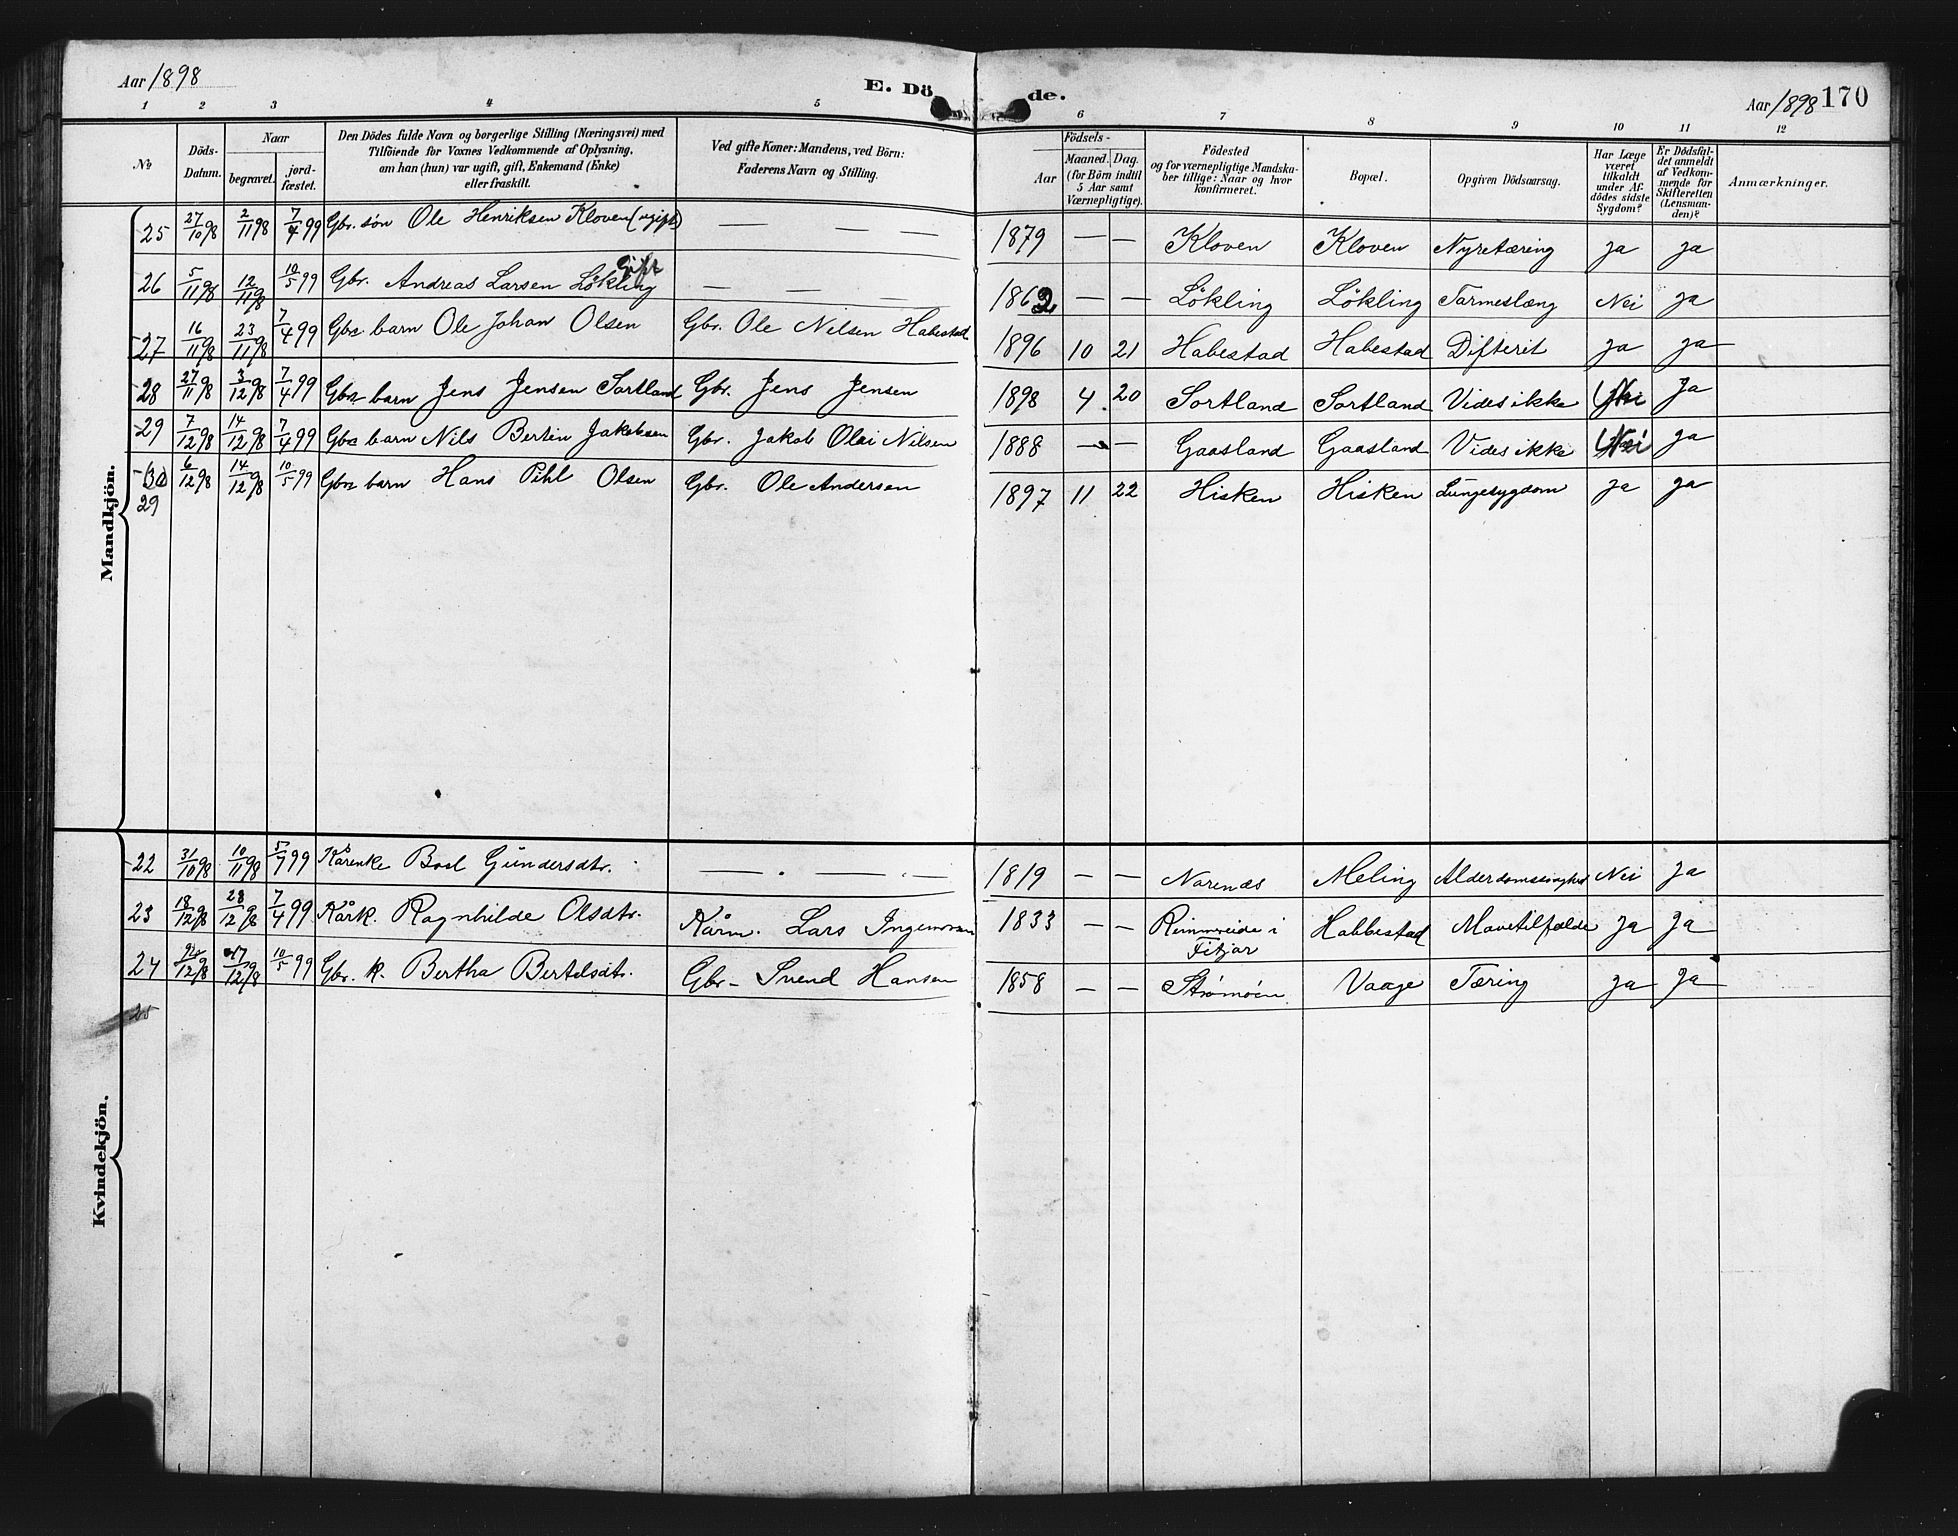 Aar 1898 E. Dö de. Aar 1898 170
1 2 3 4 5 6 7 8 9 10 11 12
No
Döds-Datum.
Naar begravet. jord-fæstet.
Den Dödes fulde Navn og borgerlige Stilling (Næringsvei) med
Tilföiende for Voxnes Vedkommende af Oplysning,
om han (hun) var ugift, gift, Enkemand (Enke)
eller fraskilt.
Ved gifte Koner: Mandens, ved Börn:
Faderens Navn og Stilling.
Födsels-
Aar Maaned. Dag.
(for Börn indtil
5 Aar samt
Værnepligtige).
Födested
og for værnepligtige Mandska-
ber tillige: Naar og hvor
konfirmeret.
Bopæl.
Opgiven Dödsaarsag.
Har Læge
været
tilkaldt
under Af-
dödes sidste
Sygdom?
Er Dödsfal-
det anmeldt
af Vedkom-
mende for
Skifteretten
(Lensman-
den)?
Anmærkninger.
Mandkjön.
25 27/10 98 2/11 98 7/4 99 Gbr. søn Ole Henriksen Kloven (ugift) — — — 1879 — — Kloven Kloven Nyretæring ja ja
26 5/11 98 12/11 98 10/5 99 Gbr. Andreas Larsen Lökling Gift — — — 1862 — — Lökling Lökling Tarmeslæng Nei ja
27 16/11 98 23/11 98 7/4 99 Gbr barn Ole Johan Olsen Gbr. Ole Nilsen Habestad 1896 10 21 Habestad Habestad Difterit ja ja
28 27/11 98 3/12 98 7/4 99 Gbr barn Jens Jensen Sortland Gbr. Jens Jensen 1898 4 20 Sortland Sortland Vides ikke Nei Ja
29 7/12 98 14/12 98 7/4 99 Gbr barn Nils Bertin Jakobsen Gbr. Jakob Olai Nilsen 1888 — — Gaasland Gaasland Vides ikke Nei ja
30 6/12 98 14/12 98 10/5 99 Gbr barn Hans Pihl Olsen Gbr. Ole Andersen 1897 11 22 Hisken Hisken Lungesygdom ja ja
29
Kvindekjön.
22 31/10 98 10/11 98 5/7 99 Kårenke Boel Gundersdtr. — — — 1819 — — Narenæs Meling Alderdomssvaghed Nei ja
23 18/12 98 28/12 98 7/4 99 Kårk. Ragnhilde Olsdtr. Kårm. Lars Ingemann 1833 — — Rimmereide i Habbestad Mavetilfælde ja ja
Fitjar
24 /12 98 17/12 98 10/5 99 Gbr. k. Bertha Bertelsdtr. Gbr- Svend Hansen 1858 — — Strömöen Vaage Tæring ja ja
25